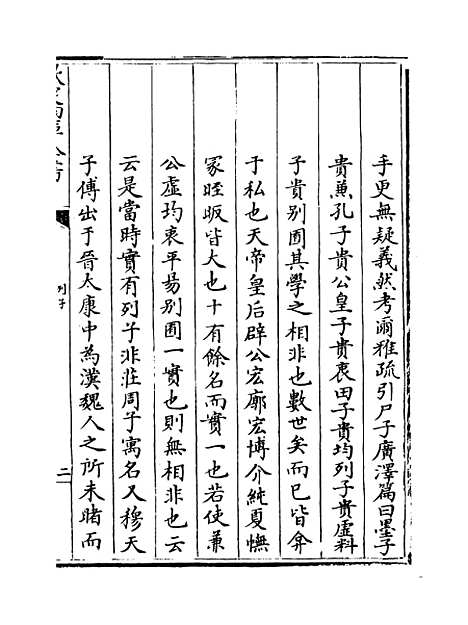 手更無疑義然考爾雅疏引尸子廣澤篇曰墨子
貴兼孔子貴公皇子貴衷田子貴均列子貴虛料
子貴别囿其學之相非也數世矣而已皆弇
于私也天帝皇后辟公宏廓宏博介純夏幠
冢晊昄皆大也十有餘名而實一也若使兼
公虛均衷平易别囿一實也則無相非也云
云是當時實有列子非莊周子寓名又穆天
子傳出于晉太康中為漢魏人之所未睹而
列子
二